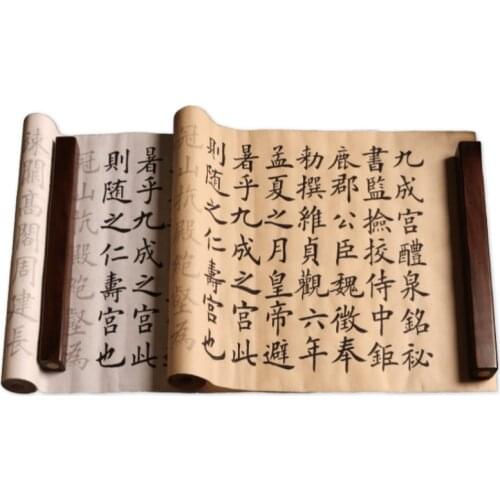 九成宮醴泉銘祕
書監撿挍侍中鉅
鹿郡公臣魏徵奉
勑撰維貞觀六年
孟夏之月皇帝避
暑乎九成之宮此
則随之仁壽宮也
冠山抗殿絕壑為
暑乎九成之宮此
則随之仁壽宮也
冠山抗殿絕壑為
竦闕高閣周建長